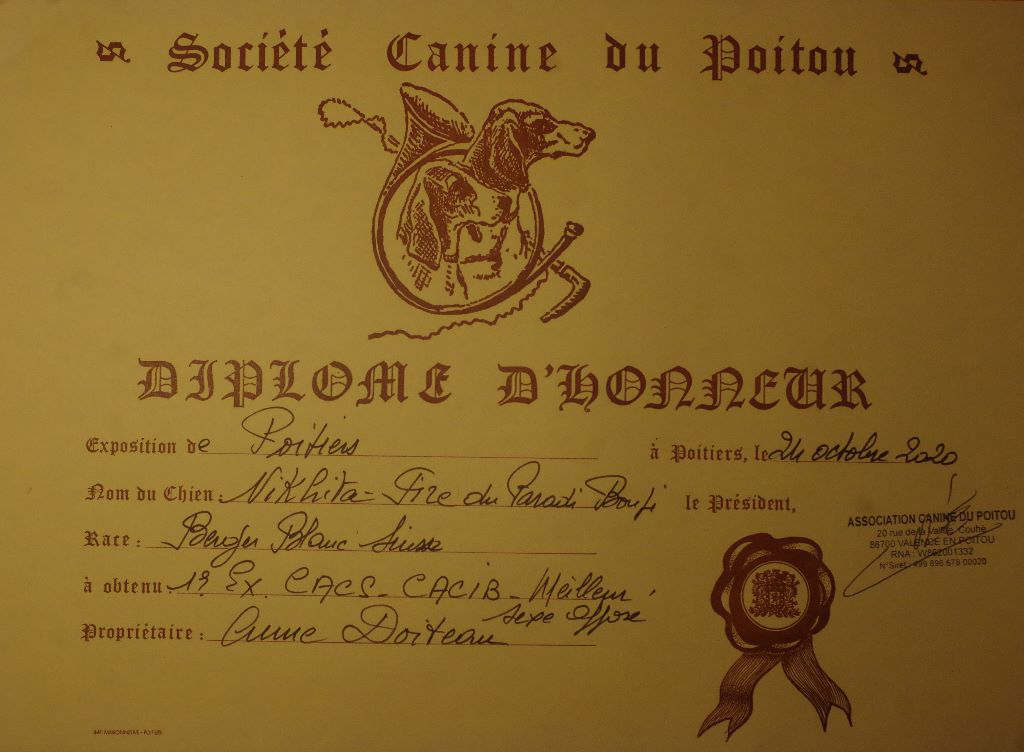 Société Canine du Poitou
DIPLOME D'HONNEUR
Exposition de Poitiers
à Poitiers, le 24 octobre 2020
Nom du Chien : Nikhita - Fire du Paradi
le Président,
ASSOCIATION CANINE DU POITOU
20 rue de la Vallée Couhé
86700 VALENCE EN POITOU
RNA : W862001332
N°Siret : 499 896 678 00020
Race : Berger Blanc Suisse
à obtenu 1° Ex. CACS - CACIB - Meilleur
sexe oppose
Propriétaire : Anne Doiteau
IMP. MARONNEAU - POITIERS